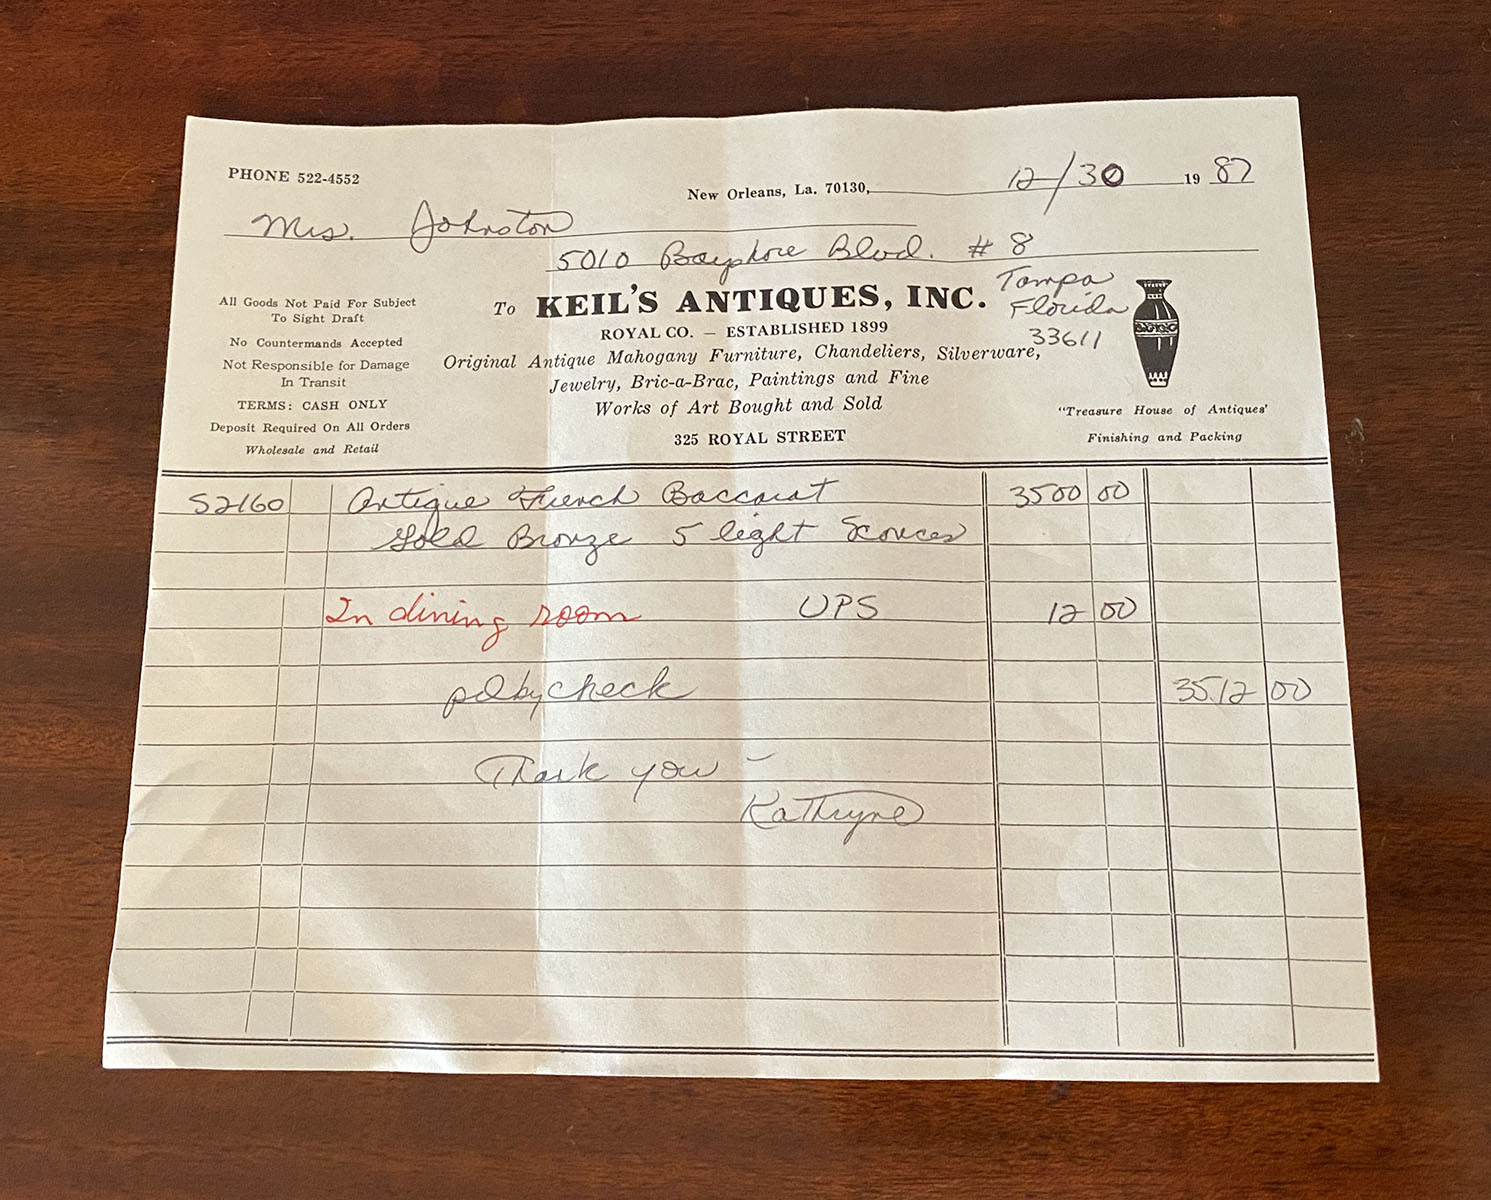 PHONE 522-4552
New Orleans, La. 70130, 12/30 19 87
Mrs. Johnston
5010 Bayshore Blvd. # 8
Tampa
Florida
33611
All Goods Not Paid For Subject
To Sight Draft
No Countermands Accepted
Not Responsible for Damage
In Transit
TERMS: CASH ONLY
Deposit Required On All Orders
Wholesale and Retail
To KEIL'S ANTIQUES, INC.
ROYAL CO. — ESTABLISHED 1899
Original Antique Mahogany Furniture, Chandeliers, Silverware,
Jewelry, Bric-a-Brac, Paintings and Fine
Works of Art Bought and Sold
325 ROYAL STREET
"Treasure House of Antiques'
Finishing and Packing
S2160 Antique French Baccarat 3500 00
Gold Bronze 5 light Sconces
In dining room UPS 12 00
pd by check 3512 00
Thank you –
Kathryne